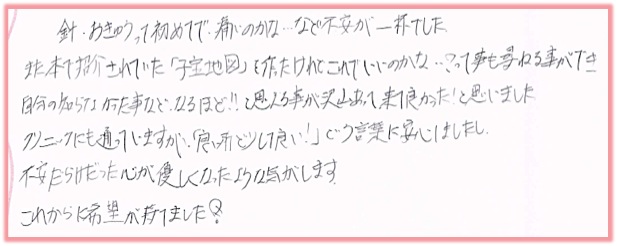 針・おきゅうって初めてで、痛いのかな…など不安が一杯でした
また本で紹介されていた「子宝地図」を作ったけれどこれでいいのかな…?って事も尋ねる事ができ
自分の知らなかった事など、なるほど!!と思える事が沢山あって来て良かった!と思いました
クリニックにも通っていますが、「良い所どりして良い!」という言葉に安心しましたし、
不安だらけだった心が優しくなったような気がします
これからに希望が持てました